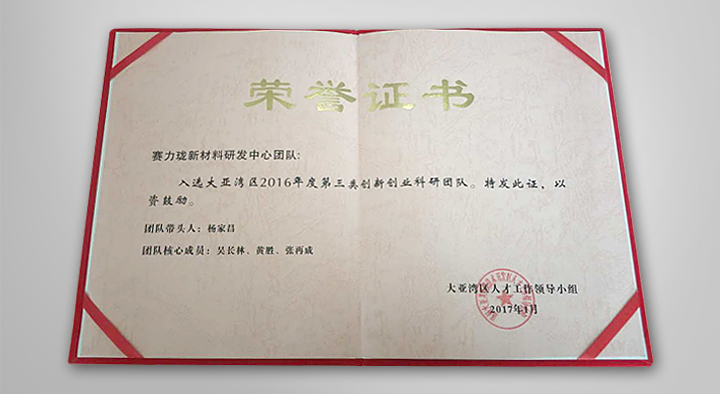 荣誉证书
赛力珑新材料研发中心团队:
入选大亚湾区2016年度第三类创新创业科研团队。特发此证，以
资鼓励。
团队带头人：杨家昌
团队核心成员：吴长林、黄胜、张再成
大亚湾区人才工作领导小组
2017年1月